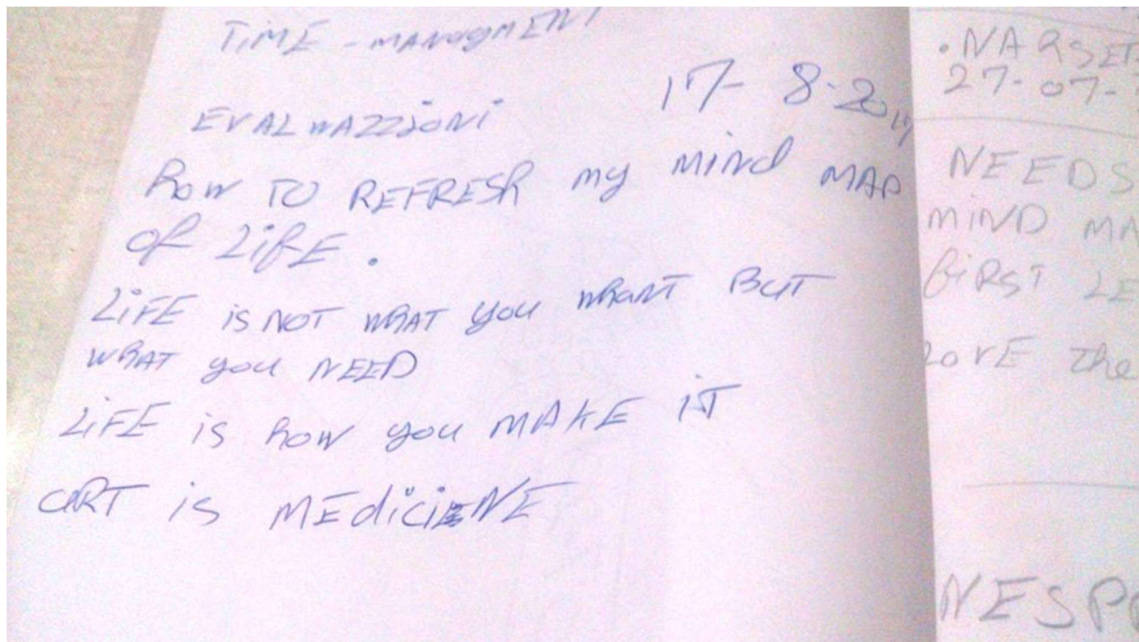 TIME - MANAGMENT
17-8-2017
EVALWAZZIONI
HOW TO REFRESH MY MIND MAP
OF LIFE.
LIFE IS NOT WHAT YOU WHANT BUT
WHAT YOU NEED
LIFE IS HOW YOU MAKE IT
ART IS MEDICIENE
27-07-
NEEDS
MIND
FIRST
LOVE The